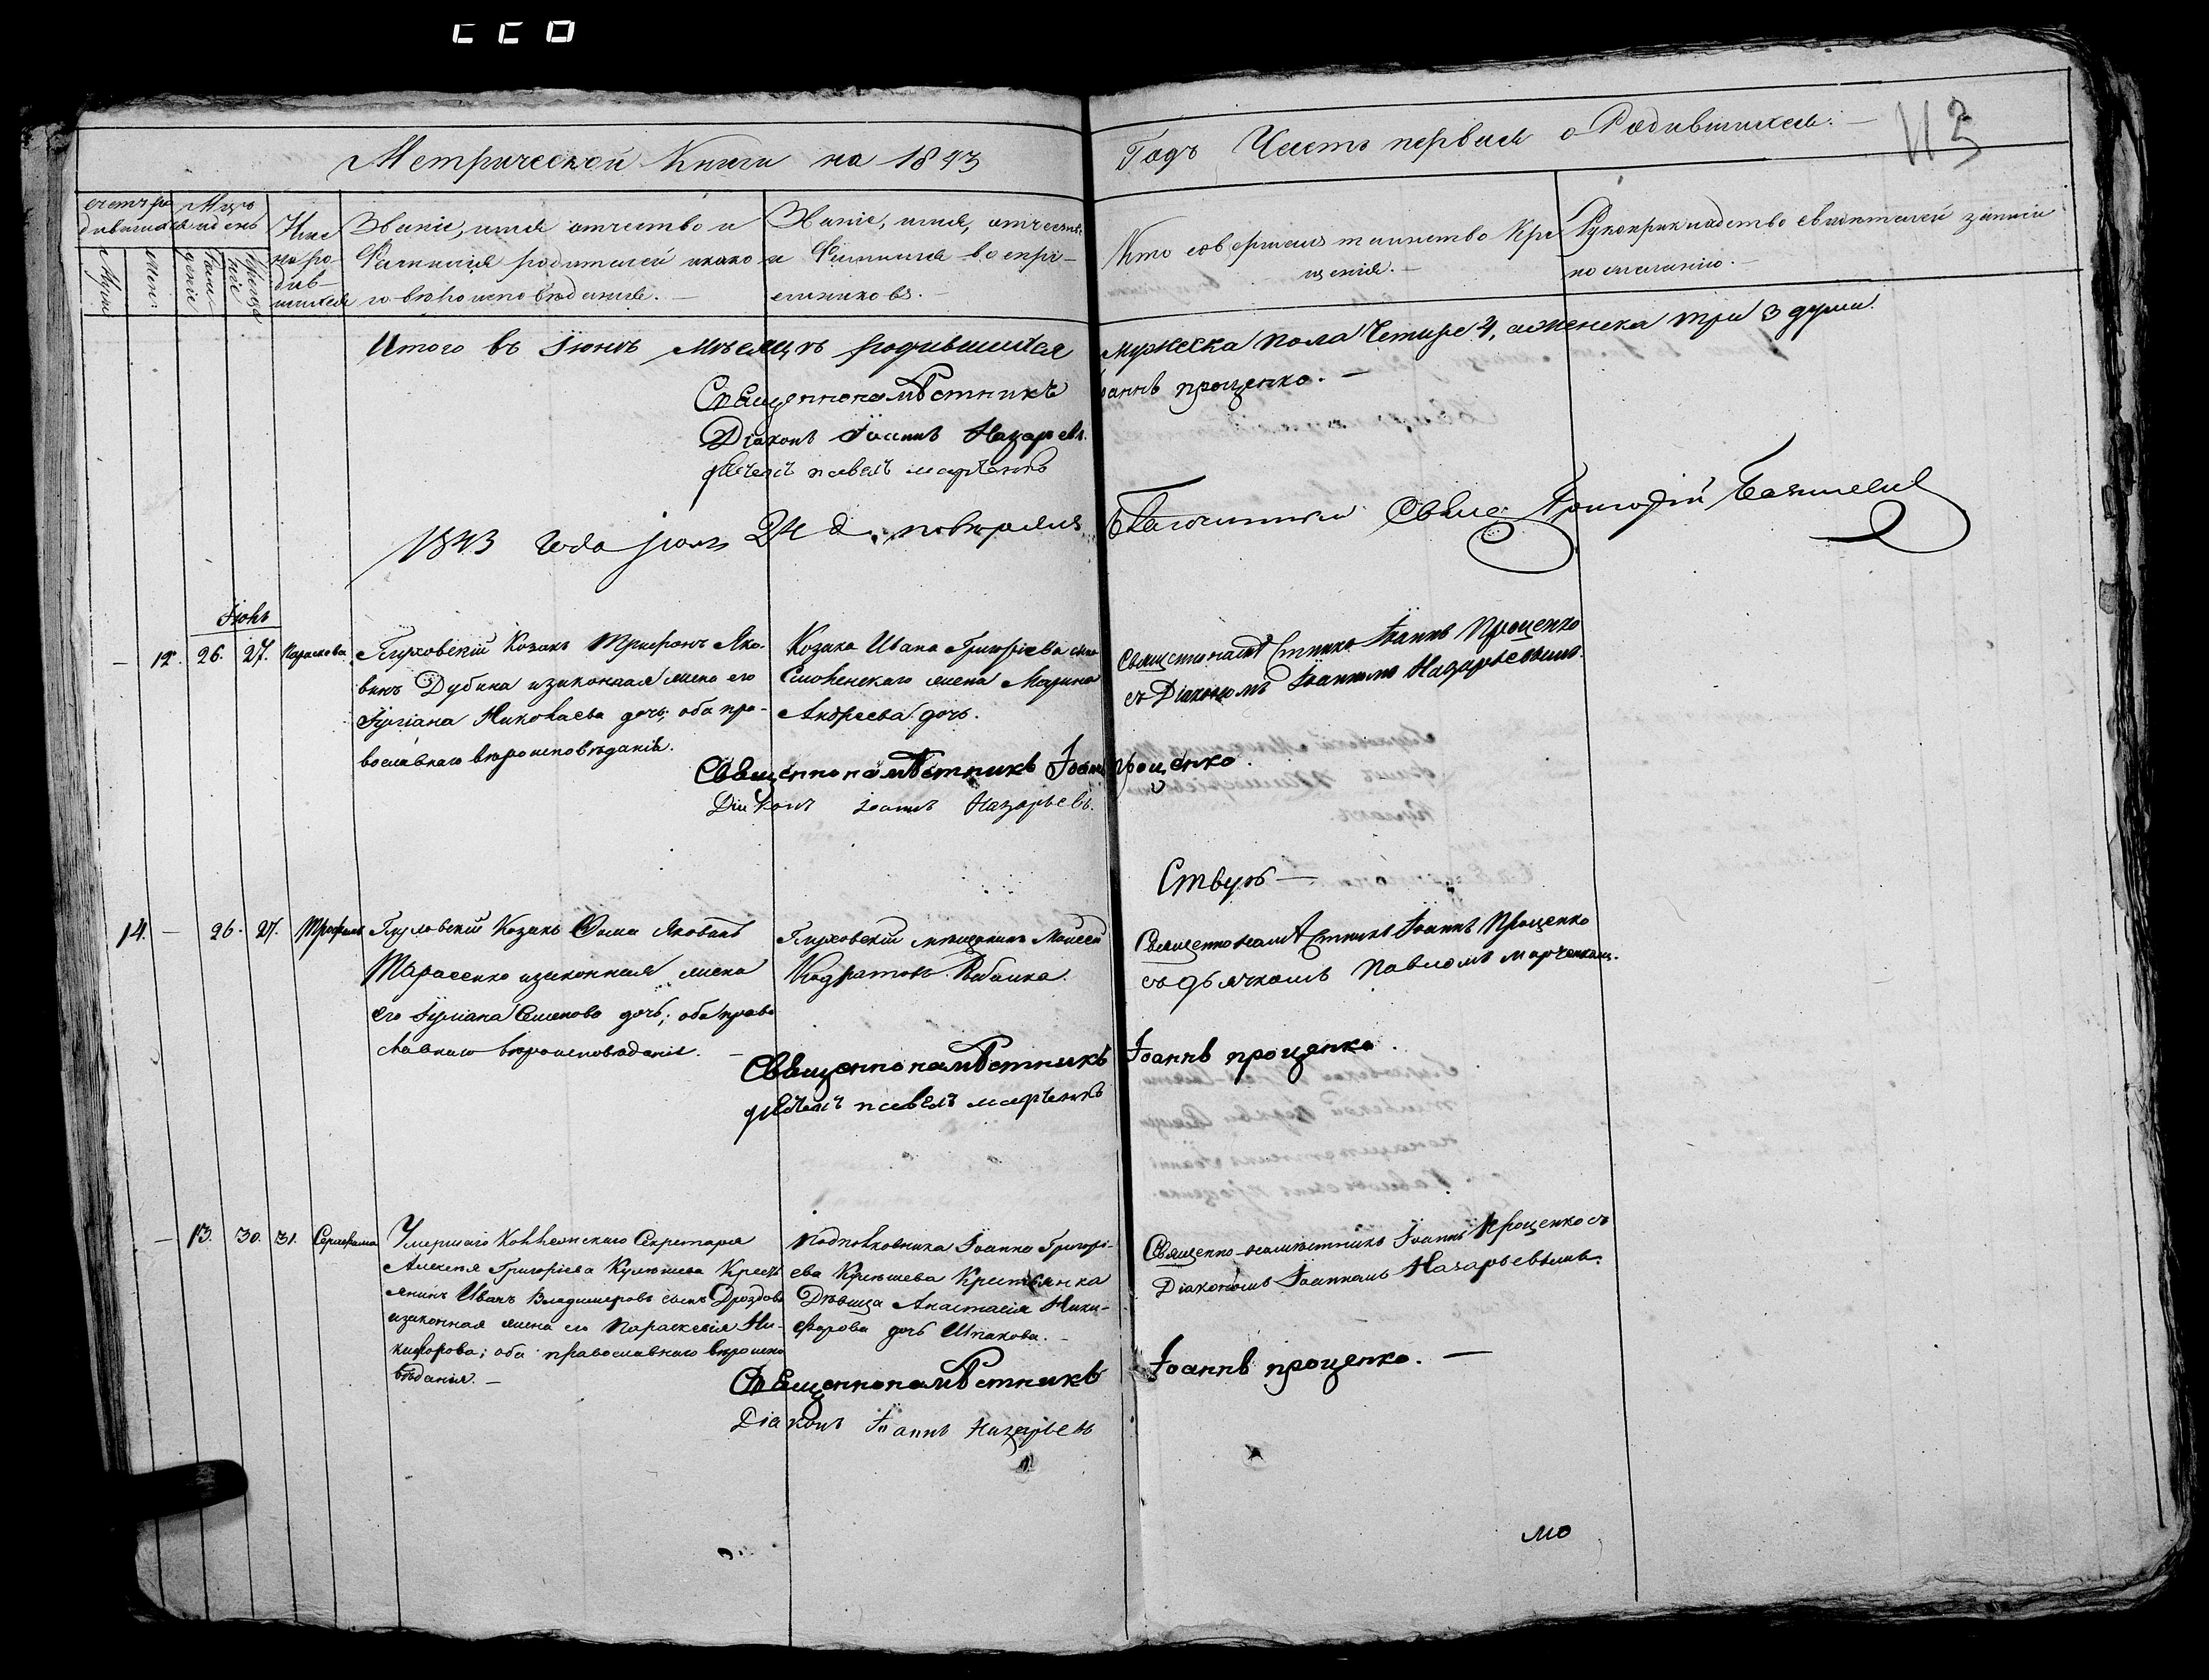 Метрической Книги на 1843
Годъ Часть первая о Родившихся. —
113
счетъ ро
дившихся
Муж:
Жен:
Мѣс: и день
Рожденіе
Крещеніе
Име
на ро-
див-
шихся
Званіе, имя отчество и
Фамилія родителей и како
го вѣроисповѣданія. —
Званіе, имя, отчество
и Фамилія воспрі-
емниковъ. —
Кто совершалъ таинство Кре
щенія. —
Рукоприкладство свидѣтелей записи
по желанію. —
Итого въ Іюнѣ мѣсяцѣ родившихся
мужеска пола Четире 4, аженска три 3 души.
Священнонамѣстникъ
Іоаннъ проценко. —
Діаконъ Іоаннъ Назарьевъ.
дьячекъ павелъ марченко
1843 года 24 д. повѣрялъ
Благочинный Свящ: Григорій
Іюнь
— 12. 26. 27. Параскева
Козакъ Трифонъ Яко-
вивъ Дубина изаконная жена его
Іуліана Николаева дочь, оба пра-
вославнаго вѣроисповѣданія.
Козака Ивана Григоріева сына
жена Марина
Андреева дочь.
Священнонамѣстникъ Іоаннъ Проценко
съ Діакономъ Іоанномъ Назарьевымъ.
Священнонамѣстникъ Іоаннъ проценко.
Діаконъ Іоаннъ Назарьевъ.
14. — 26. 27. Трофимъ
Козакъ Фома Яковивъ
Тарасенко изаконная жена
его Іуліана Семенова дочь; оба право
славнаго вѣроисповѣданія. —
мѣщанинъ Моисей
Кодратовъ
Священнонамѣстникъ Іоаннъ Проценко
съ дьячкомъ Павломъ марченкомъ.
Священнонамѣстникъ Іоаннъ проценко.
дьячекъ павелъ марченко
— 13. 30. 31. Серафима
Умершаго Коллежскаго Секретаря
Алексѣя Григоріева Кулешева Кресть
янинъ Иванъ Владимеровъ сынъ Дроздовъ
изаконная жена его Параскевія Ни-
кифорова; оба православнаго вѣроиспо
вѣданія. —
Подполковника Іоанна Григорі-
ева Кулешева Крестьянка
Дѣвица Анастасія Ники-
форова дочь Шпакова. —
Священно-намѣстникъ Іоаннъ Проценко съ
Діакономъ Іоанномъ Назарьевымъ.
Священнонамѣстникъ
Іоаннъ проценко. —
Діаконъ Іоаннъ Назарьевъ